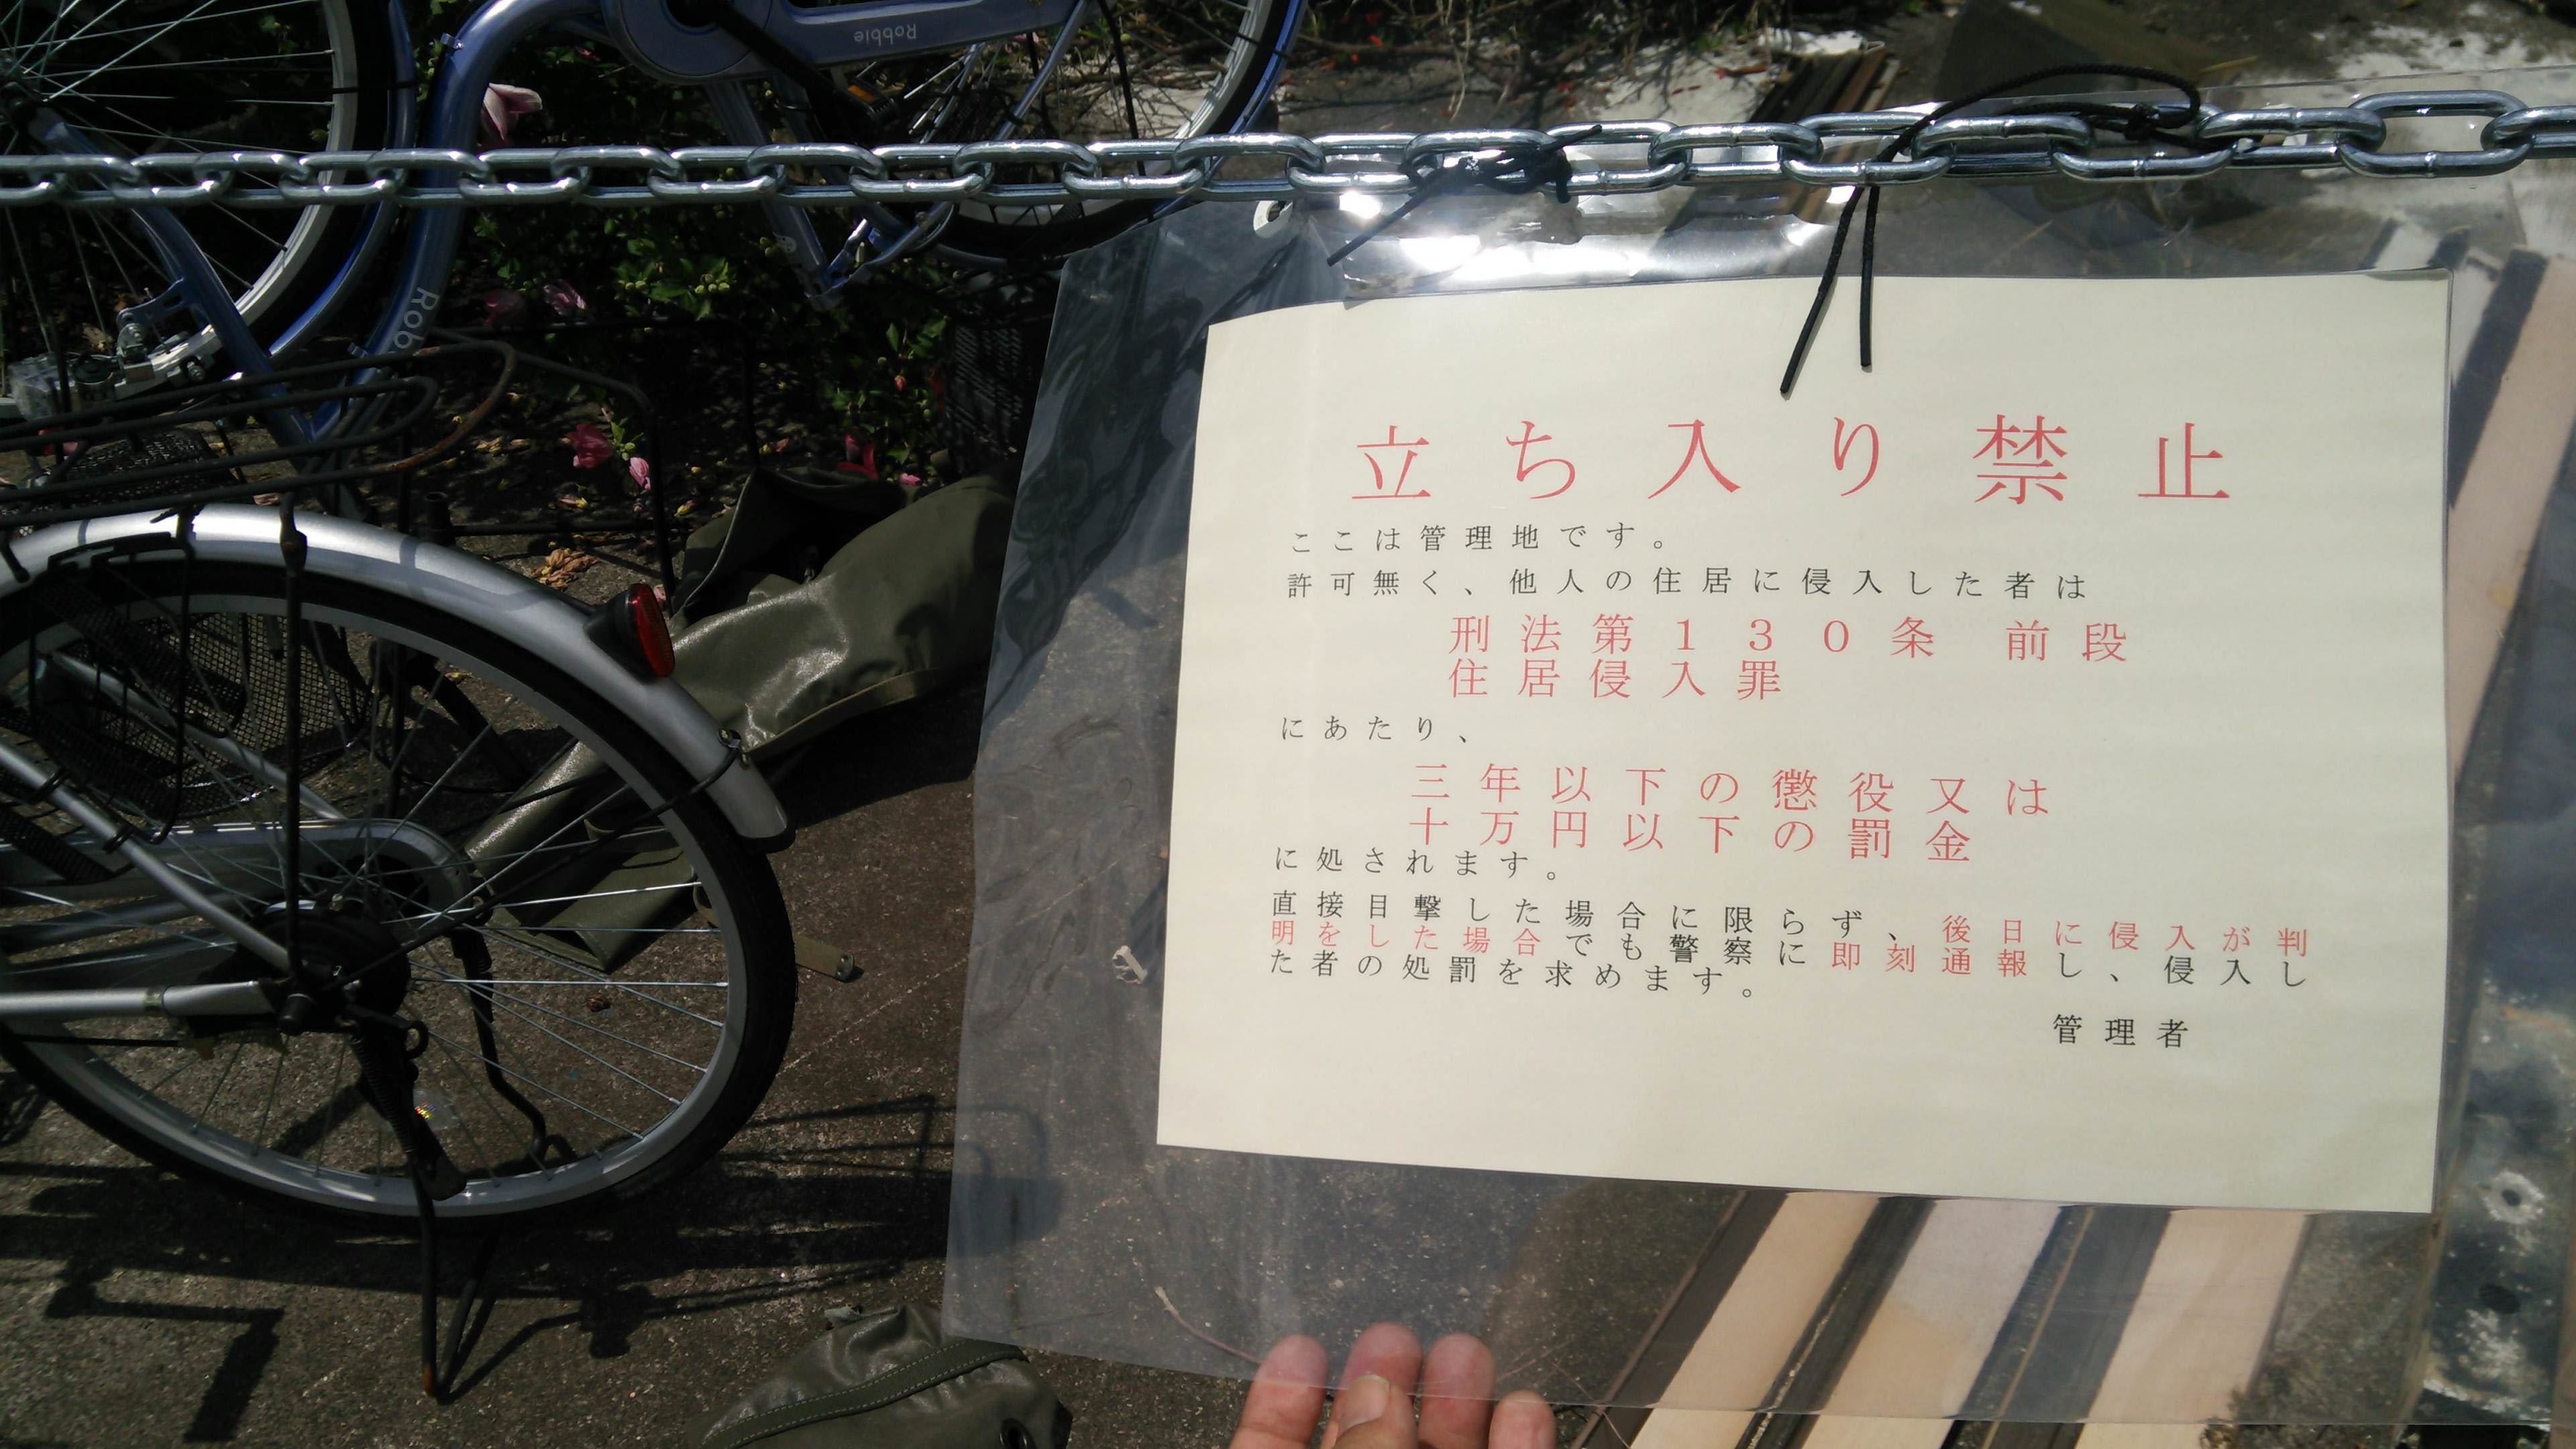 Robbie
Rob
立ち入り禁止
ここは管理地です。
許可無く、他人の住居に侵入した者は
刑法第１３０条 前段
住居侵入罪
にあたり、
三年以下の懲役又は
十万円以下の罰金
に処されます。
直接目撃した場合に限らず、後日に侵入が判
明をした場合でも警察に即刻通報し、侵入し
た者の処罰を求めます。
管理者